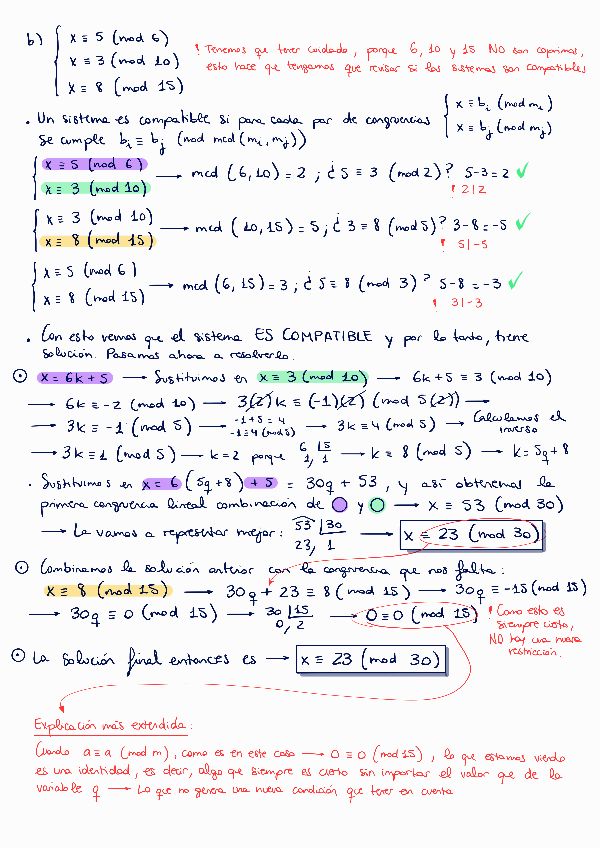 b) { x ≡ 5 (mod 6)
x ≡ 3 (mod 10)
x ≡ 8 (mod 15)
! Tenemos que tener cuidado, porque 6, 10 y 15 NO son coprimos,
esto hace que tengamos que revisar si los sistemas son compatibles
. Un sistema es compatible si para cada par de congruencias { x ≡ bi (mod mi)
x ≡ bj (mod mj)
se cumple bi ≡ bj (mod mcd(mi, mj))
{ x ≡ 5 (mod 6)
x ≡ 3 (mod 10) → mcd (6,10) = 2 ; ¿ 5 ≡ 3 (mod 2)? 5-3 = 2 ✓
! 2|2
{ x ≡ 3 (mod 10)
x ≡ 8 (mod 15) → mcd (10,15) = 5 ; ¿ 3 ≡ 8 (mod 5)? 3-8 = -5 ✓
! 5|-5
{ x ≡ 5 (mod 6)
x ≡ 8 (mod 15) → mcd (6,15) = 3 ; ¿ 5 ≡ 8 (mod 3) ? 5-8 = -3 ✓
! 3|-3
. Con esto vemos que el sistema ES COMPATIBLE y por lo tanto, tiene
solución. Pasamos ahora a resolverlo.
⊙ x = 6k + 5 → Sustituimos en x ≡ 3 (mod 10) → 6k + 5 ≡ 3 (mod 10)
→ 6k ≡ -2 (mod 10) → 3(2)k ≡ (-1)(2) (mod 5(2)) →
→ 3k ≡ -1 (mod 5) → -1+5 = 4
-1 ≡ 4 (mod 5) → 3k ≡ 4 (mod 5) → Calculamos el
inverso
→ 3k ≡ 1 (mod 5) → k = 2 porque 6 |5
1, 1 → k ≡ 8 (mod 5) → k = 5q + 8
. Sustituimos en x = 6 (5q + 8) + 5 = 30q + 53 , y así obtenemos la
primera congruencia lineal combinación de ● y ● → x ≡ 53 (mod 30)
→ La vamos a representar mejor: 53 |30
23, 1 → x ≡ 23 (mod 30)
⊙ Combinamos la solución anterior con la congruencia que nos falta:
x ≡ 8 (mod 15) → 30q + 23 ≡ 8 (mod 15) → 30q ≡ -15 (mod 15)
→ 30q ≡ 0 (mod 15) → 30 |15
0, 2 → 0 ≡ 0 (mod 15)
! Como esto es
siempre cierto,
NO hay una nueva
restricción.
⊙ La solución final entonces es → x ≡ 23 (mod 30)
Explicación más extendida:
Cuando a ≡ a (mod m), como es en este caso → 0 ≡ 0 (mod 15) , lo que estamos viendo
es una identidad, es decir, algo que siempre es cierto sin importar el valor que de la
variable q → Lo que no genera una nueva condición que tener en cuenta